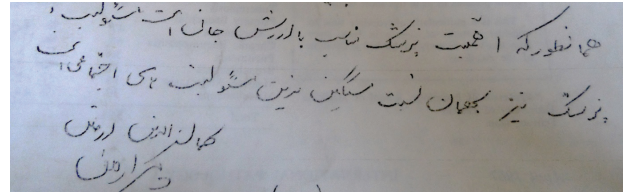 همانطور که اهمیت پزشک تناسب با ارزش جانی است مسئولیت
پزشک نیز بهمان نسبت سنگین ترین مسئولیت های اجتماعی است
کمال الدین